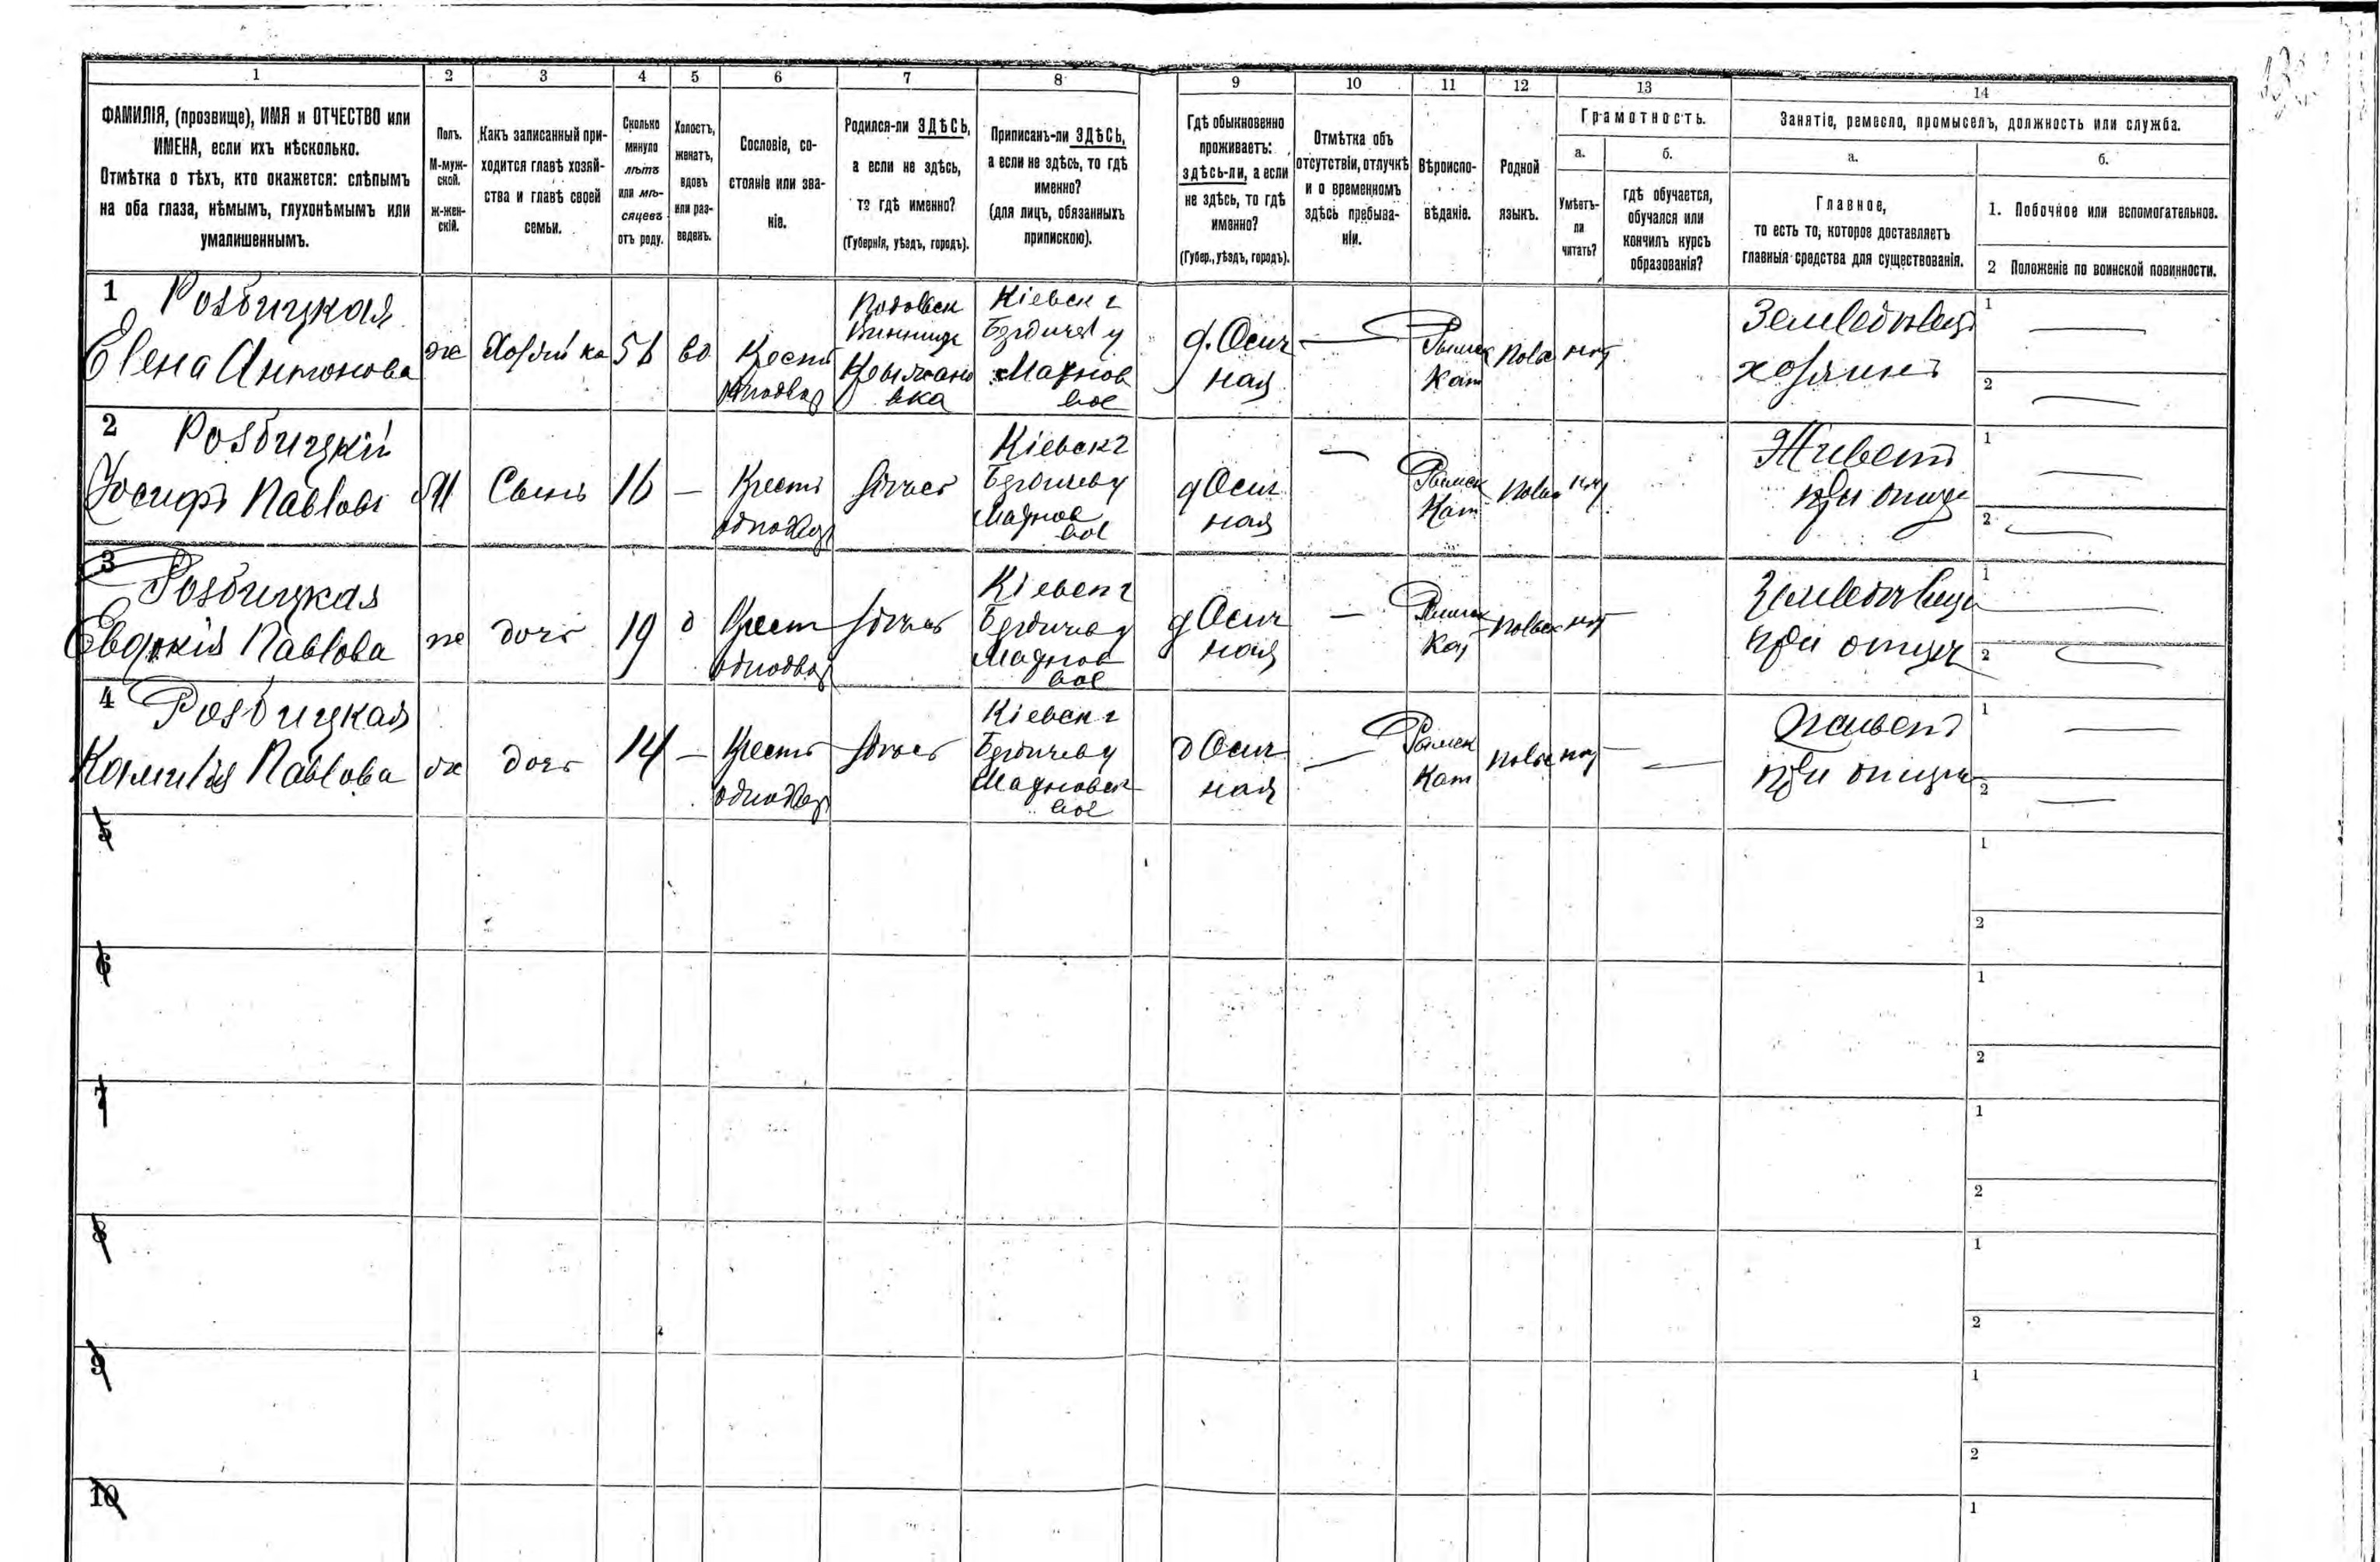 1 2 3 4 5 6 7 8 9 10 11 12 13 14
ФАМИЛІЯ, (прозвище), ИМЯ и ОТЧЕСТВО или
ИМЕНА, если ихъ нѣсколько.
Отмѣтка о тѣхъ, кто окажется: слѣпымъ
на оба глаза, нѣмымъ, глухонѣмымъ или
умалишеннымъ.
Полъ.
М-муж-
ской.
ж-жен-
скій.
Какъ записанный при-
ходится главѣ хозяй-
ства и главѣ своей
семьи.
Сколько
минуло
лѣтъ
или мѣ-
сяцевъ
отъ роду.
Холостъ,
женатъ,
вдовъ
или раз-
веденъ.
Сословіе, со-
стояніе или зва-
ніе.
Родился-ли ЗДѢСЬ,
а если не здѣсь,
то гдѣ именно?
(Губернія, уѣздъ, городъ).
Приписанъ-ли ЗДѢСЬ,
а если не здѣсь, то гдѣ
именно?
(для лицъ, обязанныхъ
припискою).
Гдѣ обыкновенно
проживаетъ:
здѣсь-ли, а если
не здѣсь, то гдѣ
именно?
(Губер., уѣздъ, городъ).
Отмѣтка объ
отсутствіи, отлучкѣ
и о временномъ
здѣсь пребыва-
ніи.
Вѣроиспо-
вѣданіе.
Родной
языкъ.
Грамотность.
а.
Умѣетъ-
ли
читать?
б.
гдѣ обучается,
обучался или
кончилъ курсъ
образованія?
Занятіе, ремесло, промыселъ, должность или служба.
а.
Главное,
то есть то, которое доставляетъ
главныя средства для существованія.
б.
1. Побочное или вспомогательное.
2 Положеніе по воинской повинности.
1 Розбицкая
Елена Антонова
ж
Хозяйка
вд
Крест
однодвор
Подольск
Винниц
Крыжано
вка
Кіевск г
Бердичев у
Махнов
вол
д. Осич
ная
—
Римск
Кат
Польс
нет
Земледѣлец
хозяинъ
1 —
2 —
2 Розбицкій
Іосифъ Павловъ
М
Сынъ
16
—
Крестъ
однодвор
здесь
Кіевск г
Бердичев у
Махнов
вол
д Осич
ная
—
Римск
Кат
Польс
нет
Живетъ
при отце
1 —
2 —
3
Розбицкая
Евдокія Павлова
ж
дочь
19
д
Крест
однодвор
здесь
Кіевск г
Бердичев у
Махнов
вол
д Осич
ная
—
Римск
Кат
Польск
нет
Земледѣлец
при отце
1 —
2 —
4 Розбицкая
Камилія Павлова
ж
дочь
14
—
Крестъ
однодвор
здесь
Кіевск г
Бердичев у
Махновск
вол
д Осич
ная
—
Римск
Кат
Польск
нет
—
Живетъ
при отце
1 —
2 —
5
1
2
6
1
2
7
1
2
8
1
2
9
1
2
10
1